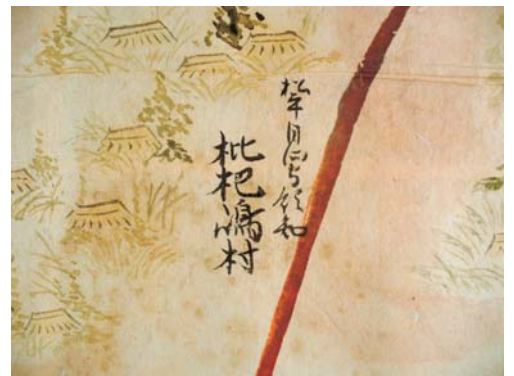 松平日向守領知
枇杷嶋村